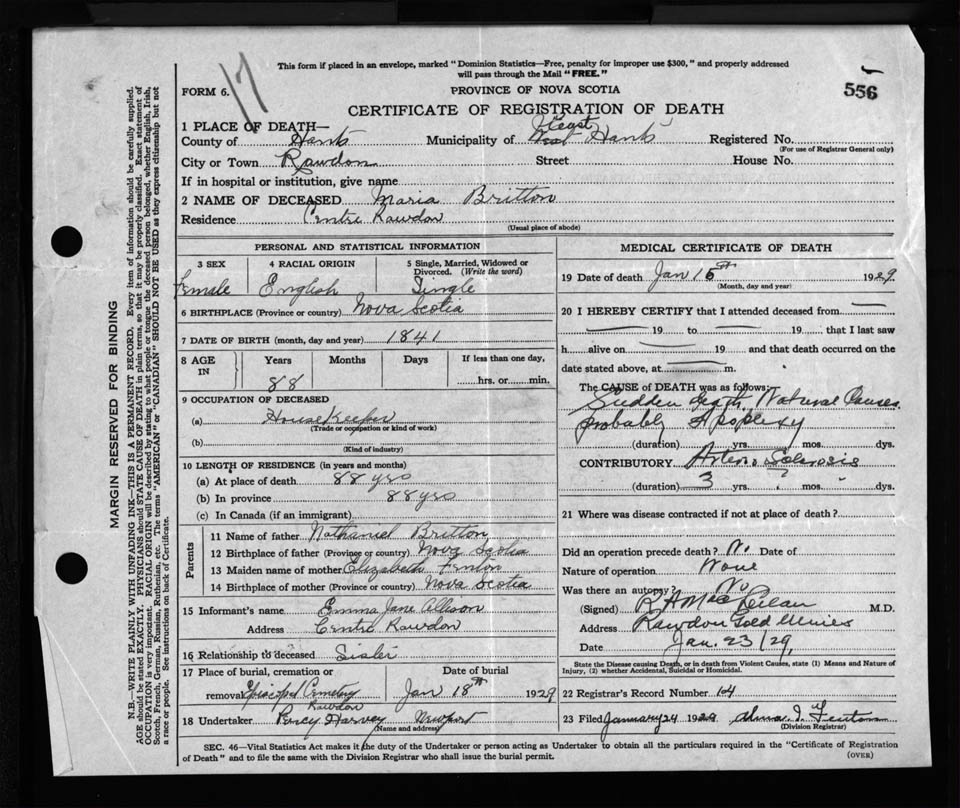 17
This form if placed in an envelope, marked "Dominion Statistics—Free, penalty for improper use $300," and properly addressed
will pass through the Mail "FREE."
FORM 6.
PROVINCE OF NOVA SCOTIA
556
CERTIFICATE OF REGISTRATION OF DEATH
1 PLACE OF DEATH—
County of Hants Municipality of West Hants Registered No.
(For use of Registrar General only)
City or Town Rawdon Street House No.
If in hospital or institution, give name
2 NAME OF DECEASED Maria Britton
Residence Centre Rawdon
(Usual place of abode)
PERSONAL AND STATISTICAL INFORMATION
3 SEX 4 RACIAL ORIGIN 5 Single, Married, Widowed or
Divorced. (Write the word)
Female English Single
6 BIRTHPLACE (Province or country) Nova Scotia
7 DATE OF BIRTH (month, day and year) 1841
8 AGE IN Years Months Days If less than one day,
88 hrs. or min.
9 OCCUPATION OF DECEASED
(a) House Keeper
(Trade or occupation or kind of work)
(b)
(Kind of industry)
10 LENGTH OF RESIDENCE (in years and months)
(a) At place of death 88 yrs
(b) In province 88 yrs
(c) In Canada (if an immigrant)
Parents
11 Name of father Nathaniel Britton
12 Birthplace of father (Province or country) Nova Scotia
13 Maiden name of mother Elizabeth Fenton
14 Birthplace of mother (Province or country) Nova Scotia
15 Informant's name Emma Jane Allison
Address Centre Rawdon
16 Relationship to deceased Sister
17 Place of burial, cremation or Date of burial
removal Episcopal Cemetery Jan 18th 1929
Rawdon
18 Undertaker Percy Harvey Newport
(Name and address)
MEDICAL CERTIFICATE OF DEATH
19 Date of death Jan 15th 1929
(Month, day and year)
20 I HEREBY CERTIFY that I attended deceased from
19 to 19 that I last saw
h alive on 19 and that death occurred on the
date stated above, at m.
The CAUSE of DEATH was as follows:
Sudden death, Natural Causes.
probably Apoplexy
(duration) yrs. mos. dys.
CONTRIBUTORY Arterio Sclerosis
(duration) 3 yrs. ? mos. dys.
21 Where was disease contracted if not at place of death?
Did an operation precede death? No Date of
Nature of operation None
Was there an autopsy? No
(Signed) M.D.
Address Rawdon Gold Mines
Date Jan. 23/29,
State the Disease causing Death, or in death from Violent Causes, state (1) Means and Nature of
Injury, (2) whether Accidental, Suicidal or Homicidal.
22 Registrar's Record Number 14
23 Filed January 24 1929 Alma I. Fenton
(Division Registrar)
SEC. 46—Vital Statistics Act makes it the duty of the Undertaker or person acting as Undertaker to obtain all the particulars required in the "Certificate of Registration
of Death" and to file the same with the Division Registrar who shall issue the burial permit.
(OVER)
MARGIN RESERVED FOR BINDING
N.B.—WRITE PLAINLY WITH UNFADING INK—THIS IS A PERMANENT RECORD. Every item of information should be carefully supplied.
AGE should be stated EXACTLY. PHYSICIANS should STATE CAUSE OF DEATH in plain terms, so that it may be properly classified. Exact statement of
OCCUPATION is very important. RACIAL ORIGIN will be described by stating to what people or tongue the deceased person belonged, whether English, Irish,
Scotch, French, German, Russian, Ruthenian, etc. The terms "AMERICAN" or "CANADIAN" SHOULD NOT BE USED as they express citizenship but not
a race or people. See instructions on back of Certificate.